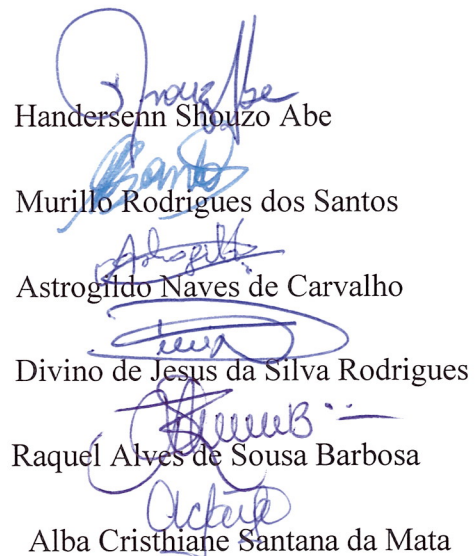 Shouzo Abe
Handersenn Shouzo Abe
Santos
Murillo Rodrigues dos Santos
Astrogildo
Astrogildo Naves de Carvalho
Divino de Jesus da Silva Rodrigues
Raquel Alves de Sousa Barbosa
Alba Cristhiane Santana da Mata